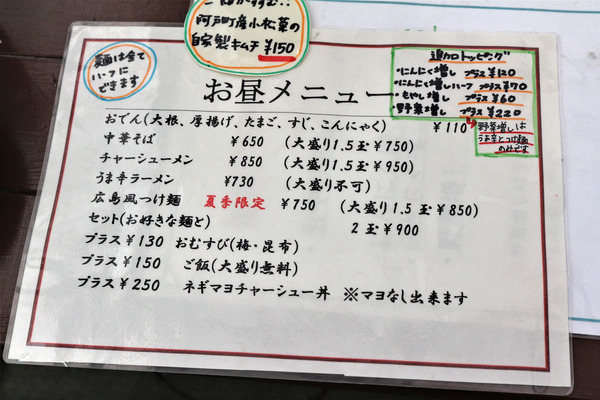 阿戸町産小松菜の
自家製キムチ ¥150
麺は全て
ハーフに
できます
追加トッピング
・にんにく増し プラス¥120
・にんにく増しハーフ プラス¥70
・もやし増し プラス¥60
・野菜増し プラス¥220
野菜増しは
うま辛とつけ麺
のみです
お昼メニュー
おでん(大根、厚揚げ、たまご、すじ、こんにゃく) ¥110
中華そば ¥650 (大盛り1.5玉¥750)
チャーシューメン ¥850 (大盛り1.5玉¥950)
うま辛ラーメン ¥730 (大盛り不可)
広島風つけ麺 夏季限定 ¥750 (大盛り1.5玉¥850)
2玉¥900
セット(お好きな麺と)
プラス¥130 おむすび(梅・昆布)
プラス¥150 ご飯(大盛り無料)
プラス¥250 ネギマヨチャーシュー丼 ※マヨなし出来ます